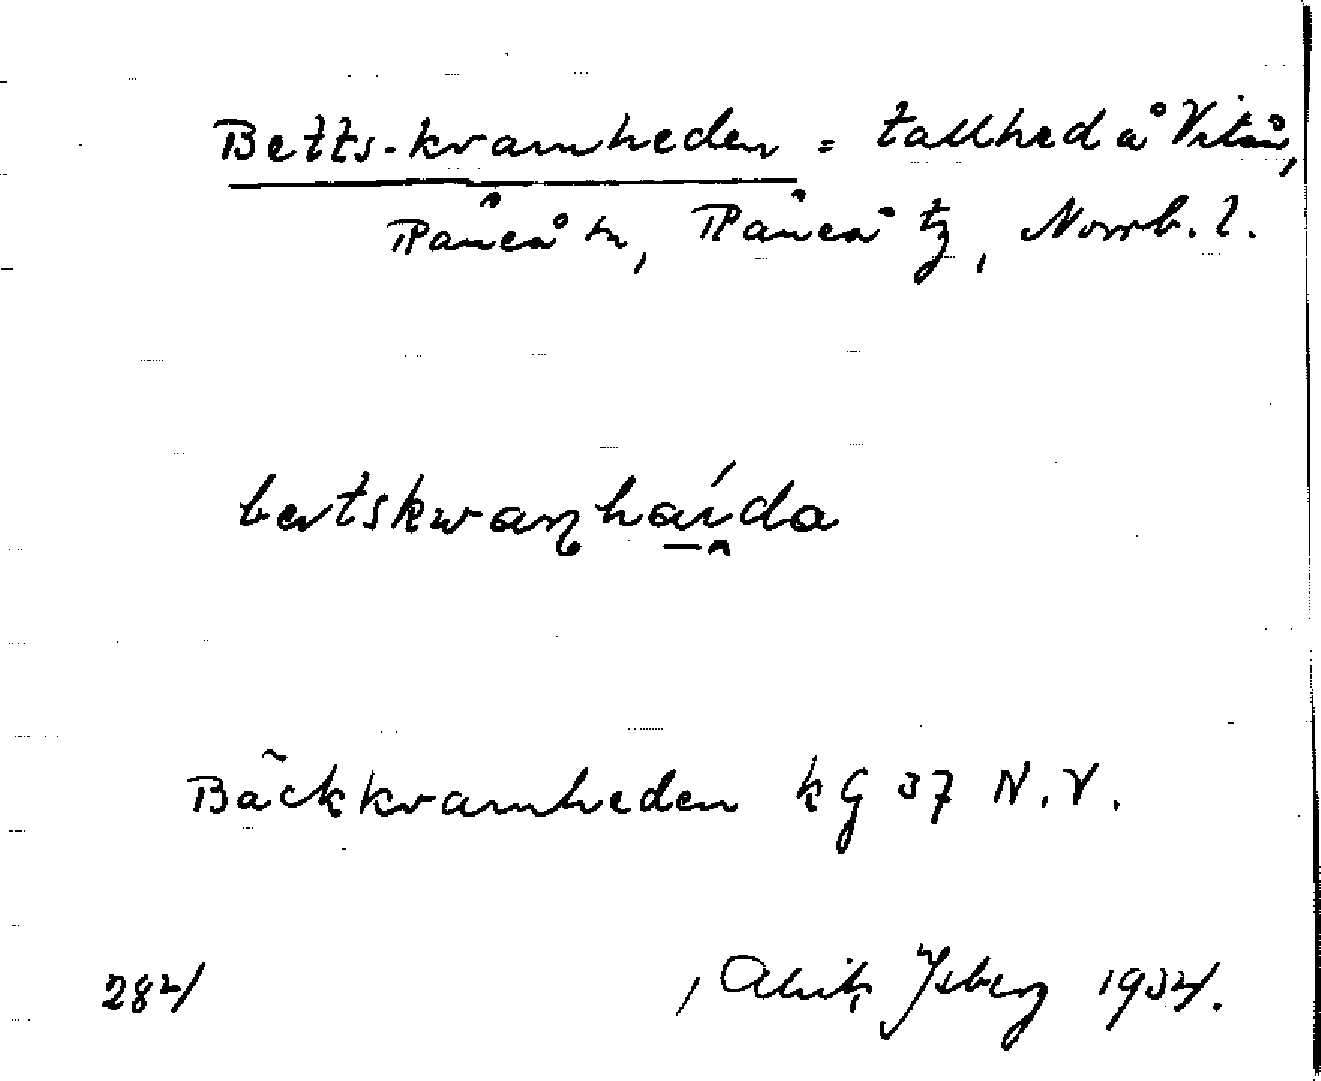 Betts-kramheden = tallhed å Vitån,
Råneå sn, Råneå tg, Norrb. l.
Bäckkramheden kG 37 N.V.
284
Alrik Isberg 1934.